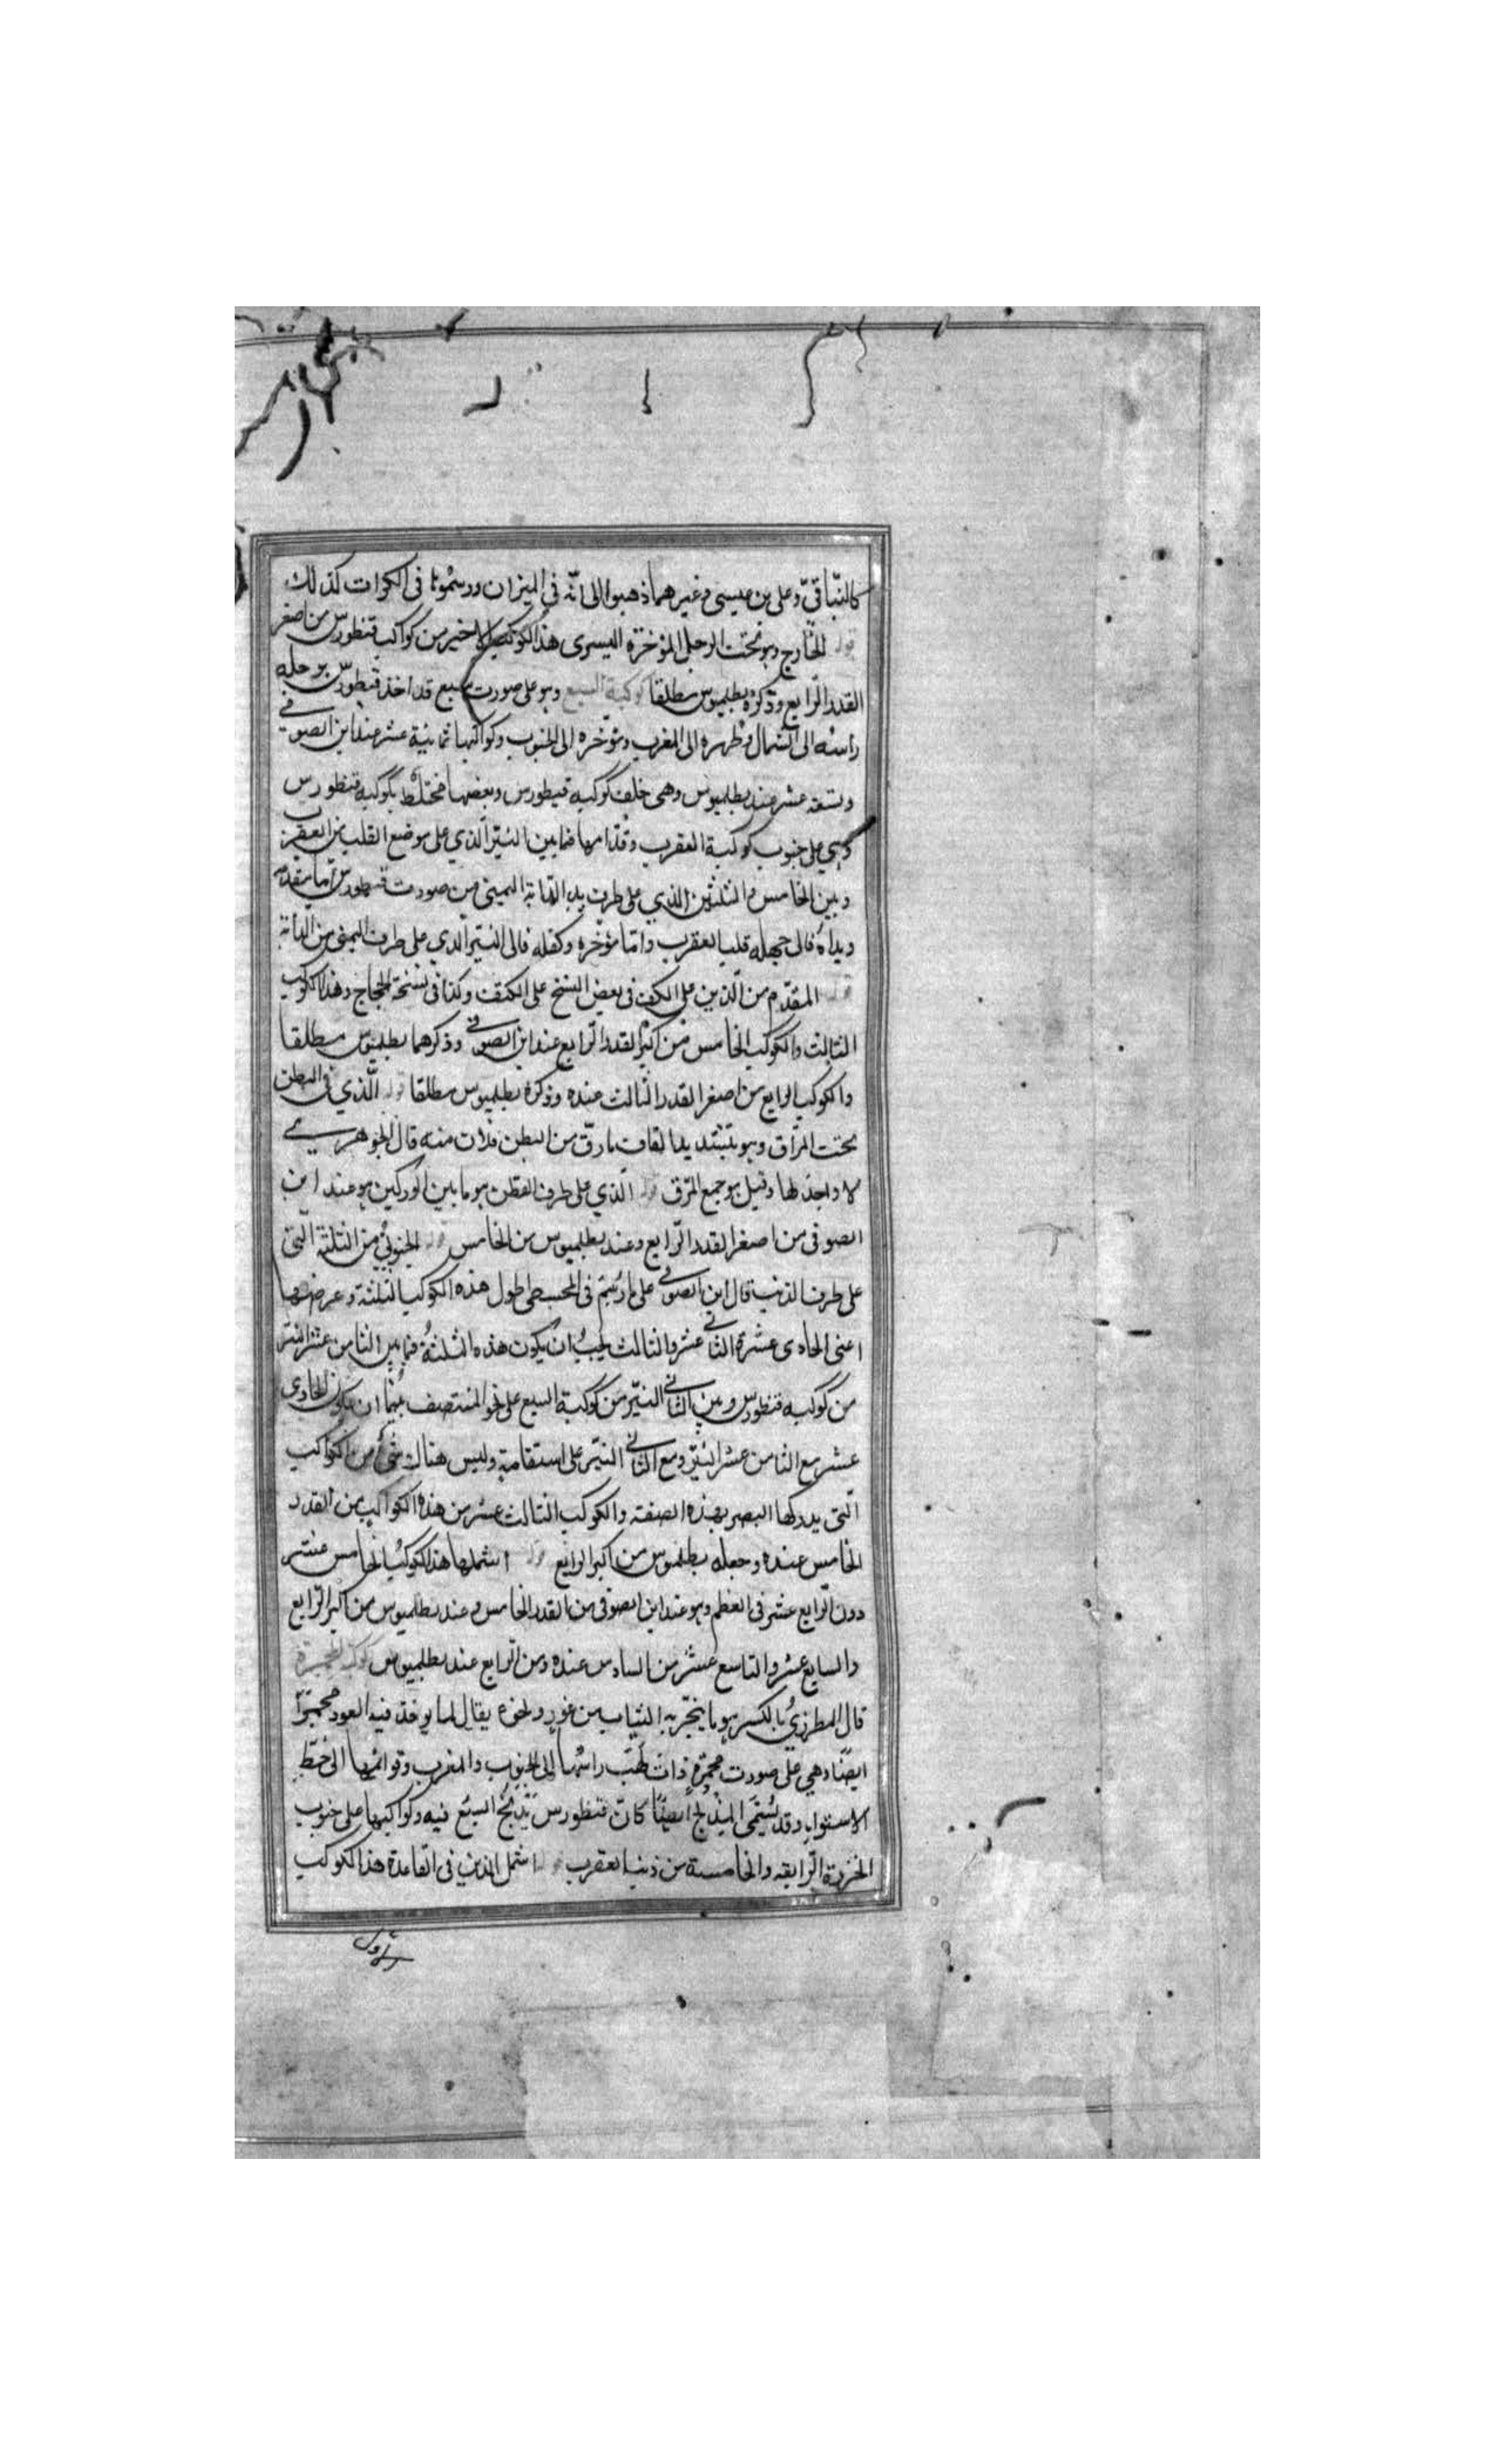 كالبتّاني وعلى بن عيسى وغيرهما ذهبوا الى انّه في الميزان ورسموها في الكرات كذلك
قوله الخارج وهو تحت الرجل المؤخرة اليسرى هذا الكوكب الاخير من كواكب قنطورس من اصغر
القدر الرابع وذكره بطلميوس مطلقا كوكبة السبع وهو على صورت سبع قد اخذ قنطورس برجله
راسه الى الشمال وظهره الى المغرب ومؤخره الى الجنوب وكواكبها ثمانية عشر عند ابن الصوفي
وتسعة عشر عند بطلميوس وهى خلف كوكبه قنطورس وبعضها مختلط بكوكبه قنطورس
وهي على جنوب كوكبة العقرب وقدّامها فما بين النيّر الّذي على موضع القلب من العقرب
وبين الخامس والثلثين الذي على طرف يد الدابة اليمنى من صورت قنطورس امّا مقدّمه
ويداه فالى جبهه قلب العقرب وامّا مؤخره وكفله فالى النيّر الذي على طرف اليمنى من الدابّة
قوله المقدّم من الّذين على الكتف فى بعض النسخ على الكتف وكذا فى نسخة الحجاج وهذا الكوكب
الثالث والكوكب الخامس من اكبر القدر الرّابع عند ابن الصوفي وذكرهما بطلميوس مطلقا
والكوكب الرابع من اصغر القدر الثالث عنده وذكره بطلميوس مطلقا قوله الّذي في البطن
تحت المراق وهو بتشديد القاف مارقّ من البطن ولان منه قال الجوهري
لا واحد لها وقيل هو جمع المرق قوله الّذي على طرف القطن هو ما بين الوركين هو عند ابن
الصوفى من اصغر القدر الرّابع وعند بطلميوس من الخامس قوله الجنوبيّ من الثلثة التي
على طرف الذنب قال ابن الصوفي على ما رسم فى المجسطى طول هذه الكواكب الثلثة وعرضها
اعنى الحادى عشر والثاني عشر والثالث يجب ان يكون هذه الثلثة فيما بين الثامن عشر النيّر
من كوكبه قنطورس وبين الثاني النيّر من كوكبة السبع على نحو المنتصف بينهما ان يكون الحادى
عشر مع الثامن عشر النيّر ومع الثاني النيّر على استقامة وليس هناك شئ من الكواكب
الّتي يدركها البصر بهذه الصفة والكوكب الثالث عشر من هذه الكواكب من القدر
الخامس عنده وجعله بطلميوس من اكبر الرابع قوله اشملها هذا الكوكب الخامس عشر
دون الرّابع عشر فى العظم وهو عند ابن الصوفى من القدر الخامس وعند بطلميوس من اكبر الرّابع
والسابع عشر والتاسع عشر من السادس عنده ومن الرّابع عند بطلميوس كوكبة المجمرة
قال المطرزيّ بالكسر هو ما يبخّر به الثياب من عود ونحوه يقال لما يوقد فيه العود مجمرًا
ايضًا وهي على صورت مجمرة ذات لهب راسها الى الجنوب والمغرب وقوائمها الى خطّ
الاستواء وقد يسمّى المذبح ايضًا كانّ قنطورس يذبح السبع فيه وكواكبها على جنوب
الخرزة الرّابعة والخامسة من ذنب العقرب قوله اشمل الذين فى القاعدة هذا الكوكب